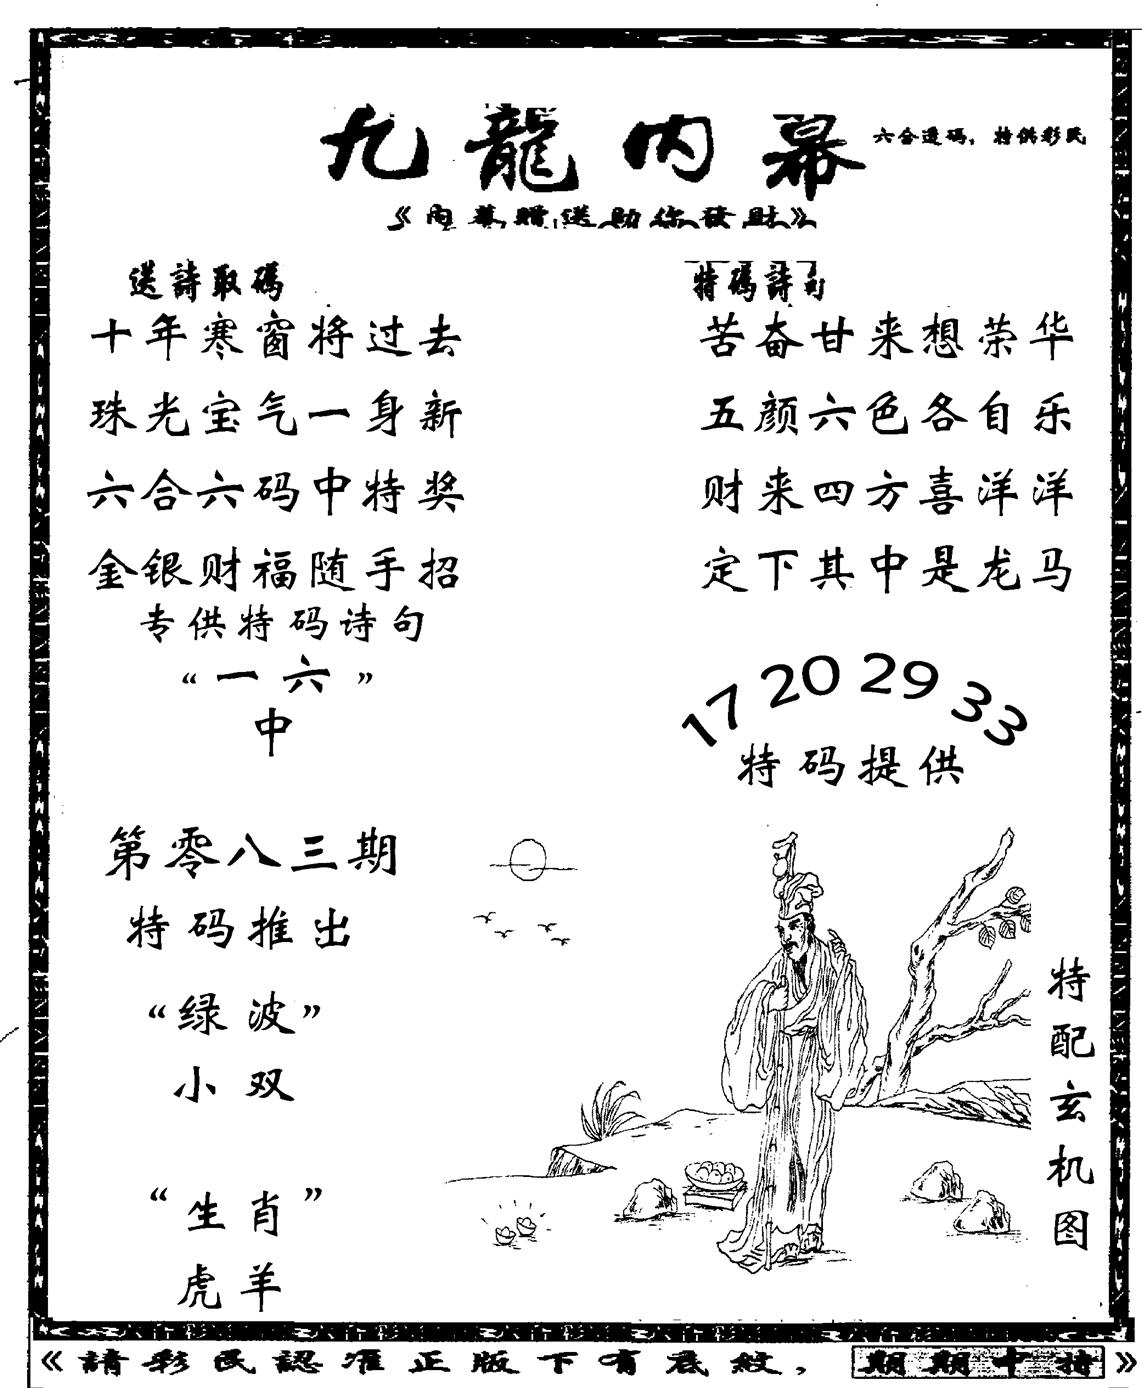 九龍内幕
六合透码，特供彩民
《内幕赠送助你发财》
送詩取碼
十年寒窗将过去
珠光宝气一身新
六合六码中特奖
金银财福随手招
专供特码诗句
“一六”
中
特碼詩句
苦奋甘来想荣华
五颜六色各自乐
财来四方喜洋洋
定下其中是龙马
17 20 29 33
特码提供
第零八三期
特码推出
“绿波”
小双
“生肖”
虎羊
特配玄机图
《請彩民認准正版下有底紋，期期中特》